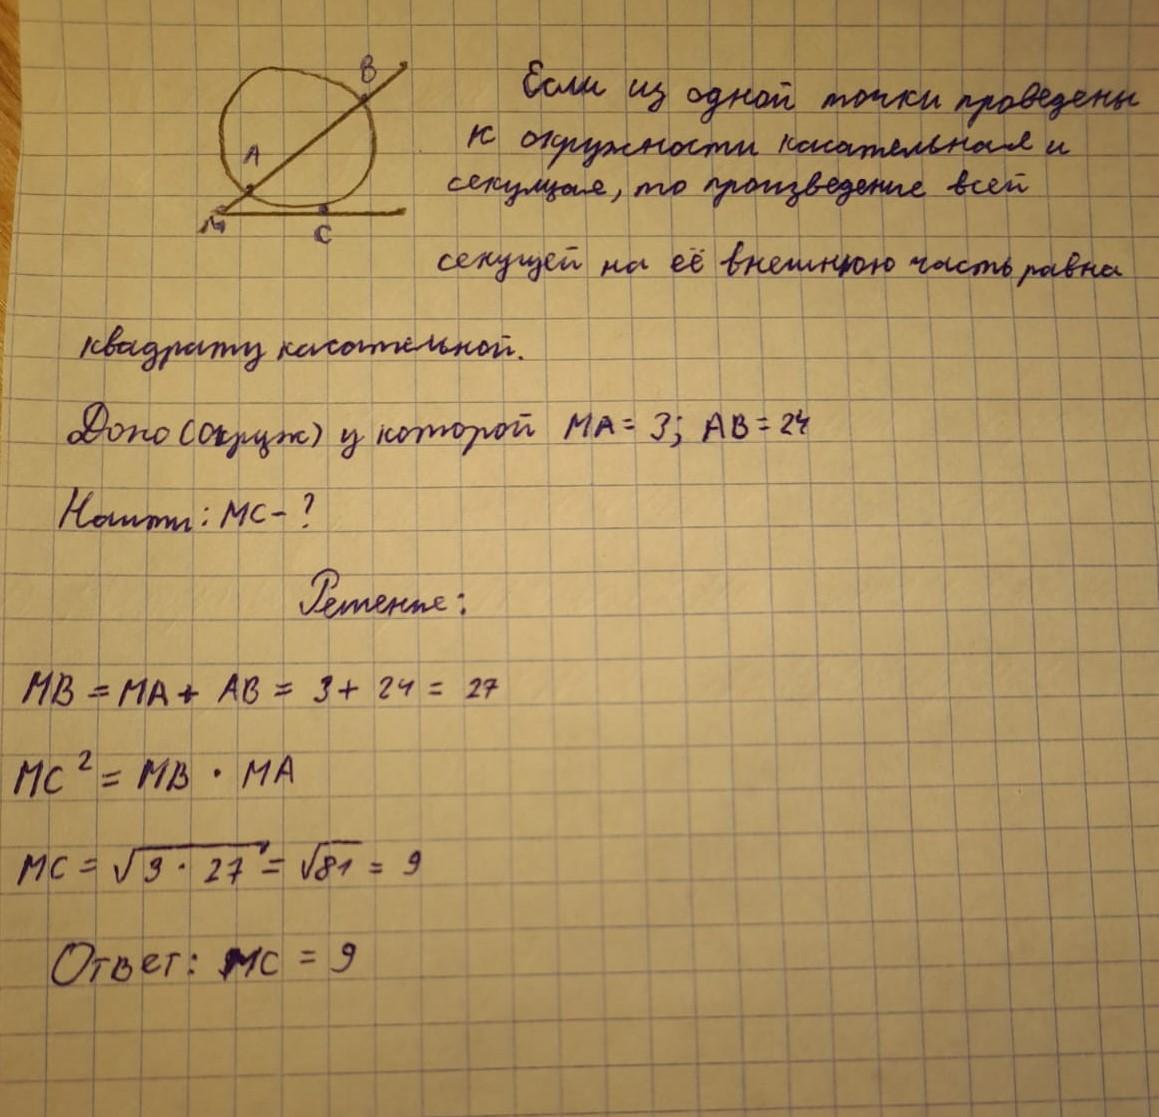 B
Если из одной точки проведены
A
к окружности касательная и
секущая, то произведение всей
M
C
секущей на её внешнюю часть равна
квадрату касательной.
Дано (окруж) у которой MA = 3; AB = 24
Найти: MC - ?
Решение:
MB = MA + AB = 3 + 24 = 27
MC² = MB · MA
MC = √3 · 27 = √81 = 9
Ответ: MC = 9